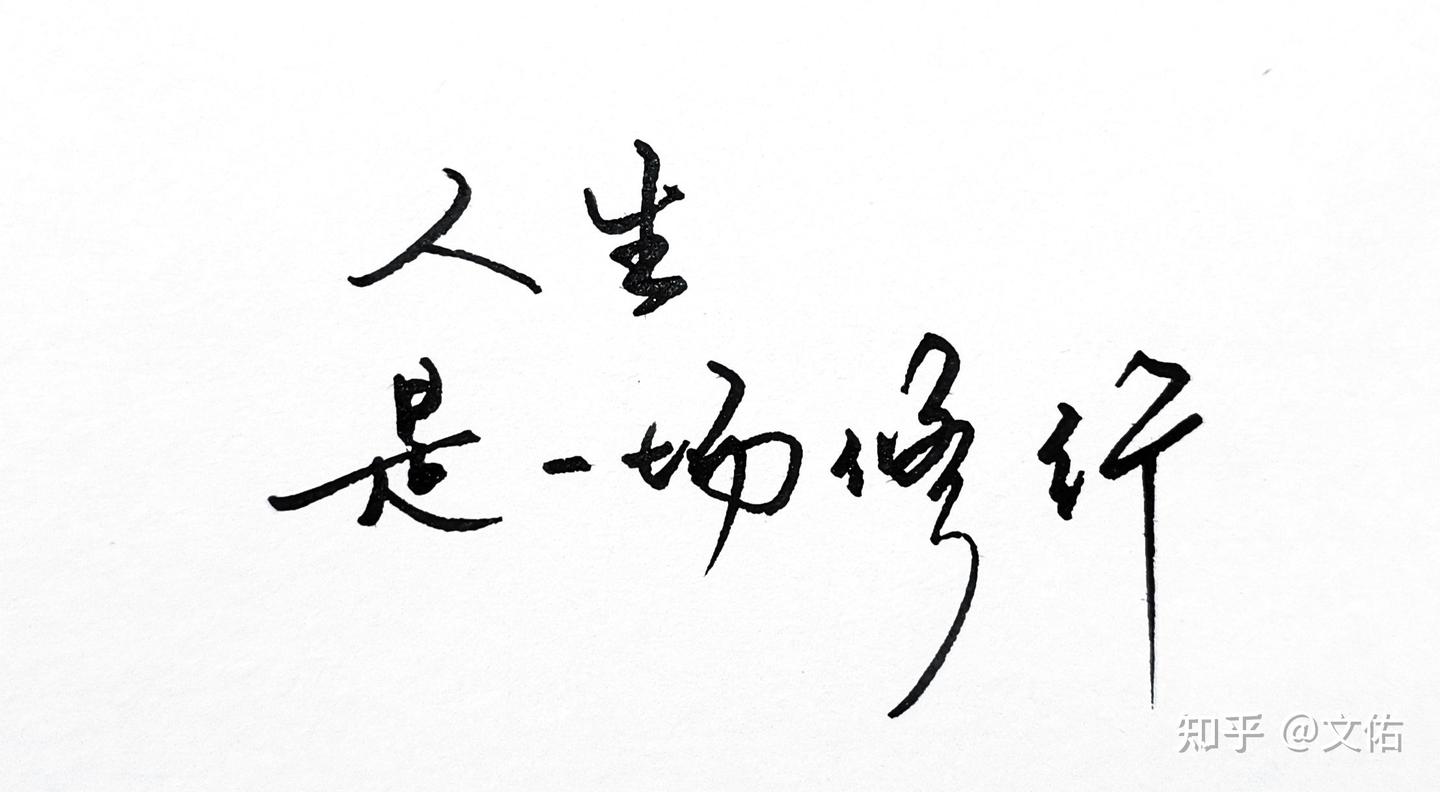 人生
是一场修行
知乎 @文佑